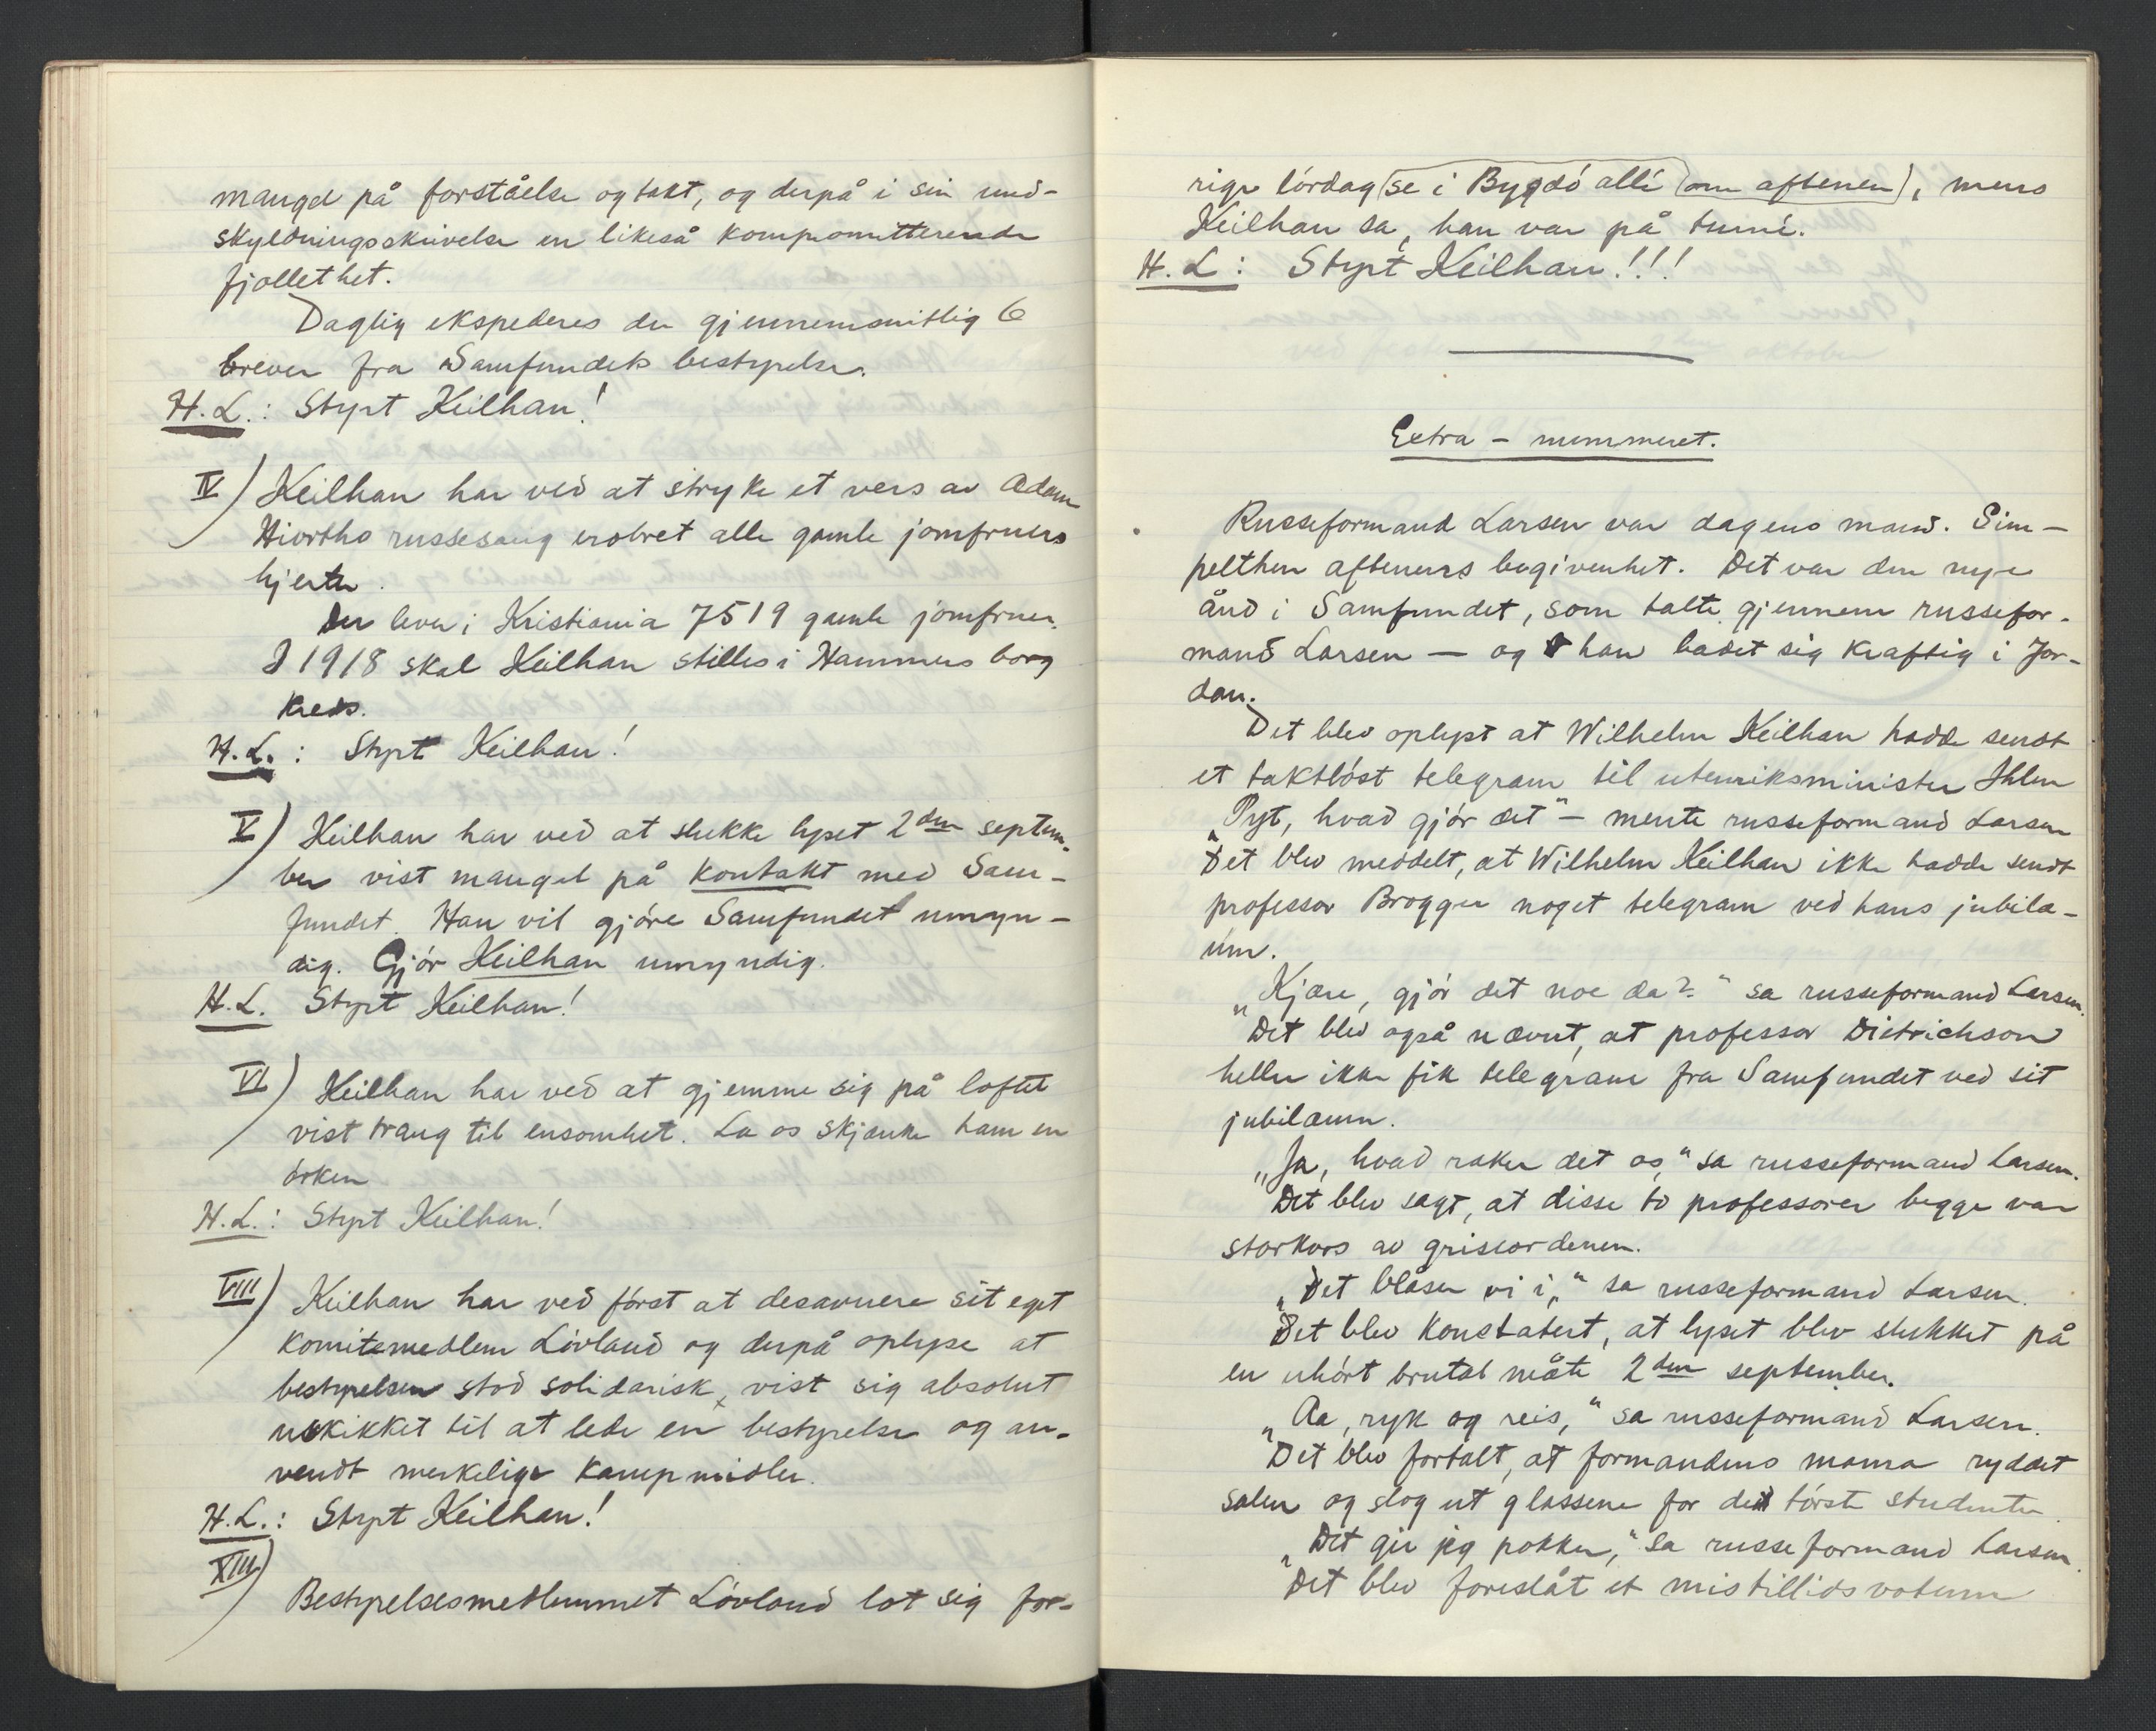 mangel på forståelse og takt, og derpå i sin und-
skyldningsskrivelse en likeså kompromitterende
fjollethet.
Daglig ekspederes der gjennemsnitlig 6
brever fra Samfundets bestyrelse.
H.L.: Styrt Keilhau!
IV) Keilhau har ved at stryke et vers av Adam
Hiorths russesang erobret alle gamle jomfruers
hjerter.
Der lever i Kristiania 7519 gamle jomfruer.
I 1918 skal Keilhau stilles i Hammersborg
kreds.
H.L.: Styrt Keilhau!
V) Keilhau har ved at slukke lyset 2den septem-
ber vist mangel på kontakt med Sam-
fundet. Han vil gjøre Samfundet umyn-
dig. Gjør Keilhau umyndig.
H.L. Styrt Keilhau!
VI) Keilhau har ved at gjemme sig på loftet
vist trang til ensomhet. La os skjænke ham en
ørken
H.L.: Styrt Keilhau!
VIII) Keilhau har ved først at desavuere sit eget
komitemedlem Løvland og derpå oplyse at
bestyrelsen stod solidarisk, vist sig absolut
uskikket til at lede en bestyrelse og an-
vendt merkelige kampmidler.
H.L.: Styrt Keilhau!
XIII)
Bestyrelsesmedlemmet Løvland lot sig for-
rige lørdag (se i Bygdø allé (om aftenen), mens
Keilhau sa, han var på turné.
H.L: Styrt Keilhau!!!
Extra - nummeret.
Russeformand Larsen var dagens mand. Sim-
pelthen aftenens begivenhet. Det var den nye
ånd i Samfundet, som talte gjennem russefor-
mand Larsen — og han badet sig kraftig i Jor-
dan.
Det blev oplyst at Wilhelm Keilhau hadde sendt
et taktløst telegram til utenriksminister Ihlen
„Pyt, hvad gjør det" — mente russeformand Larsen
Det blev meddelt, at Wilhelm Keilhau ikke hadde sendt
professor Brøgger noget telegram ved hans jubilæ-
um.
„Kjære, gjør det noe da?" sa russeformand Larsen.
Det blev også nævnt, at professor Dietrichson
heller ikke fik telegram fra Samfundet ved sit
jubilæum.
„Ja, hvad raker det os," sa russeformand Larsen.
Det blev sagt, at disse to professorer begge var
storkors av griseordenen.
„Det blåser vi i," sa russeformand Larsen.
Det blev konstatert, at lyset blev slukket på
en uhørt brutal måte 2den september.
„Aa, ryk og reis," sa russeformand Larsen.
Det blev fortalt, at formandens mama ryddet
salen og slog ut glassene for de tørste studenter.
„Det gir jeg pokker," sa russeformand Larsen.
Det blev foreslåt et mistillidsvotum